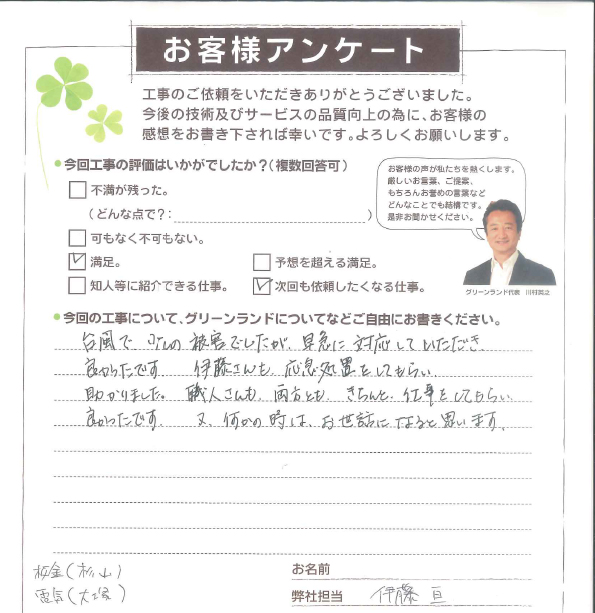 お客様アンケート
工事のご依頼をいただきありがとうございました。
今後の技術及びサービスの品質向上の為に、お客様の
感想をお書き下されば幸いです。よろしくお願いします。
今回工事の評価はいかがでしたか?(複数回答可)
不満が残った。
(どんな点で?: )
可もなく不可もない。
満足。
予想を超える満足。
知人等に紹介できる仕事。
次回も依頼したくなる仕事。
お客様の声が私たちを熱くします。
厳しいお言葉、ご提案、
もちろんお誉めの言葉など
どんなことでも結構です。
是非お聞かせください。
グリーンランド代表 川村英之
今回の工事について、グリーンランドについてなどご自由にお書きください。
台風で の被害でしたが、早急に対応していただき、
良かったです。 伊藤さんも、応急処置をしてもらい
助かりました。 職人さんも、両方とも、きちんと、仕事をしてもらい
良かったです。 又、何かの時は、お世話になると思います。
お名前
弊社担当 伊藤 亘
板金(杉山)
電気(大塚)